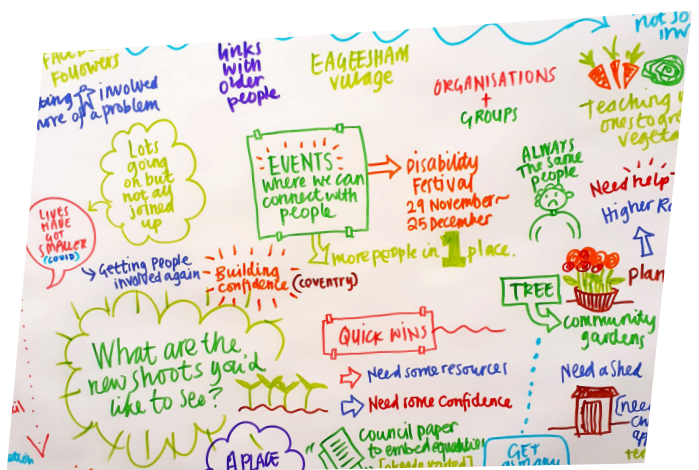 Followers
links
with
older
people
EAGLESHAM
village
ORGANISATIONS
+
GROUPS
not so
Teaching
vegeta
involved
more of a problem
Lots
going
on but
not all
joined
up
EVENTS
where we can
connect with
people
Disability
Festival
29 November~
25 December
more people in 1 place.
ALWAYS
the same
people
Need help
Higher
LIVES
HAVE
GOT
SMALLER
(COVID)
Getting People
involved again
Building
confidence (COVENTRY)
TREE
plan
community
gardens
What are the
new shoots you'd
like to see?
QUICK WINS
Need some resources
Need some confidence
Need a shed
A PLACE
council paper
to embed equalities
GET